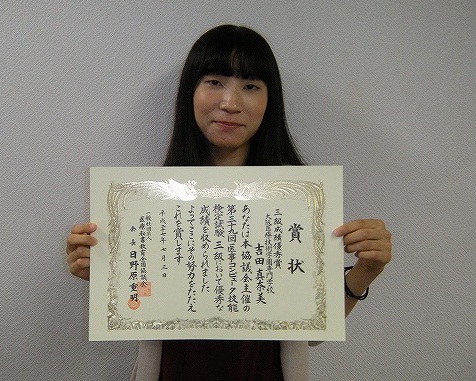 賞状
三級成績優秀賞
大阪医療技術学園専門学校
吉田 真奈美
あなたは本協議会主催の
第三十九回医事コンピュータ技能
検定試験 三級において優秀な
成績を収められました
よってここにその努力をたたえ
これを賞します
平成二十七年七月三日
一般社団法人
医療秘書教育全国協議会
会長 日野原重明